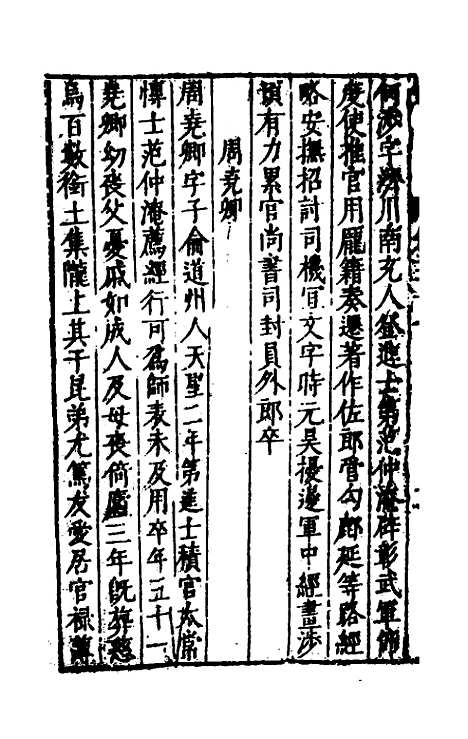 何涉字濟川南充人登進士第范仲淹辟彰武軍節
度使推官用龎籍奏遷著作佐郎管勾鄜延等路經
略安撫招討司機宜文字時元昊擾邊軍中經畫涉
預有力累官尚書司封員外郎卒
周堯卿
周堯卿字子俞道州人天聖二年第進士積官太常
博士范仲淹薦經行可爲師表未及用卒年五十一
堯卿幼喪父憂戚如成人及母喪倚廬三年既葬慈
烏百數銜土集隴上其于昆弟尤篤友愛居官禄薄